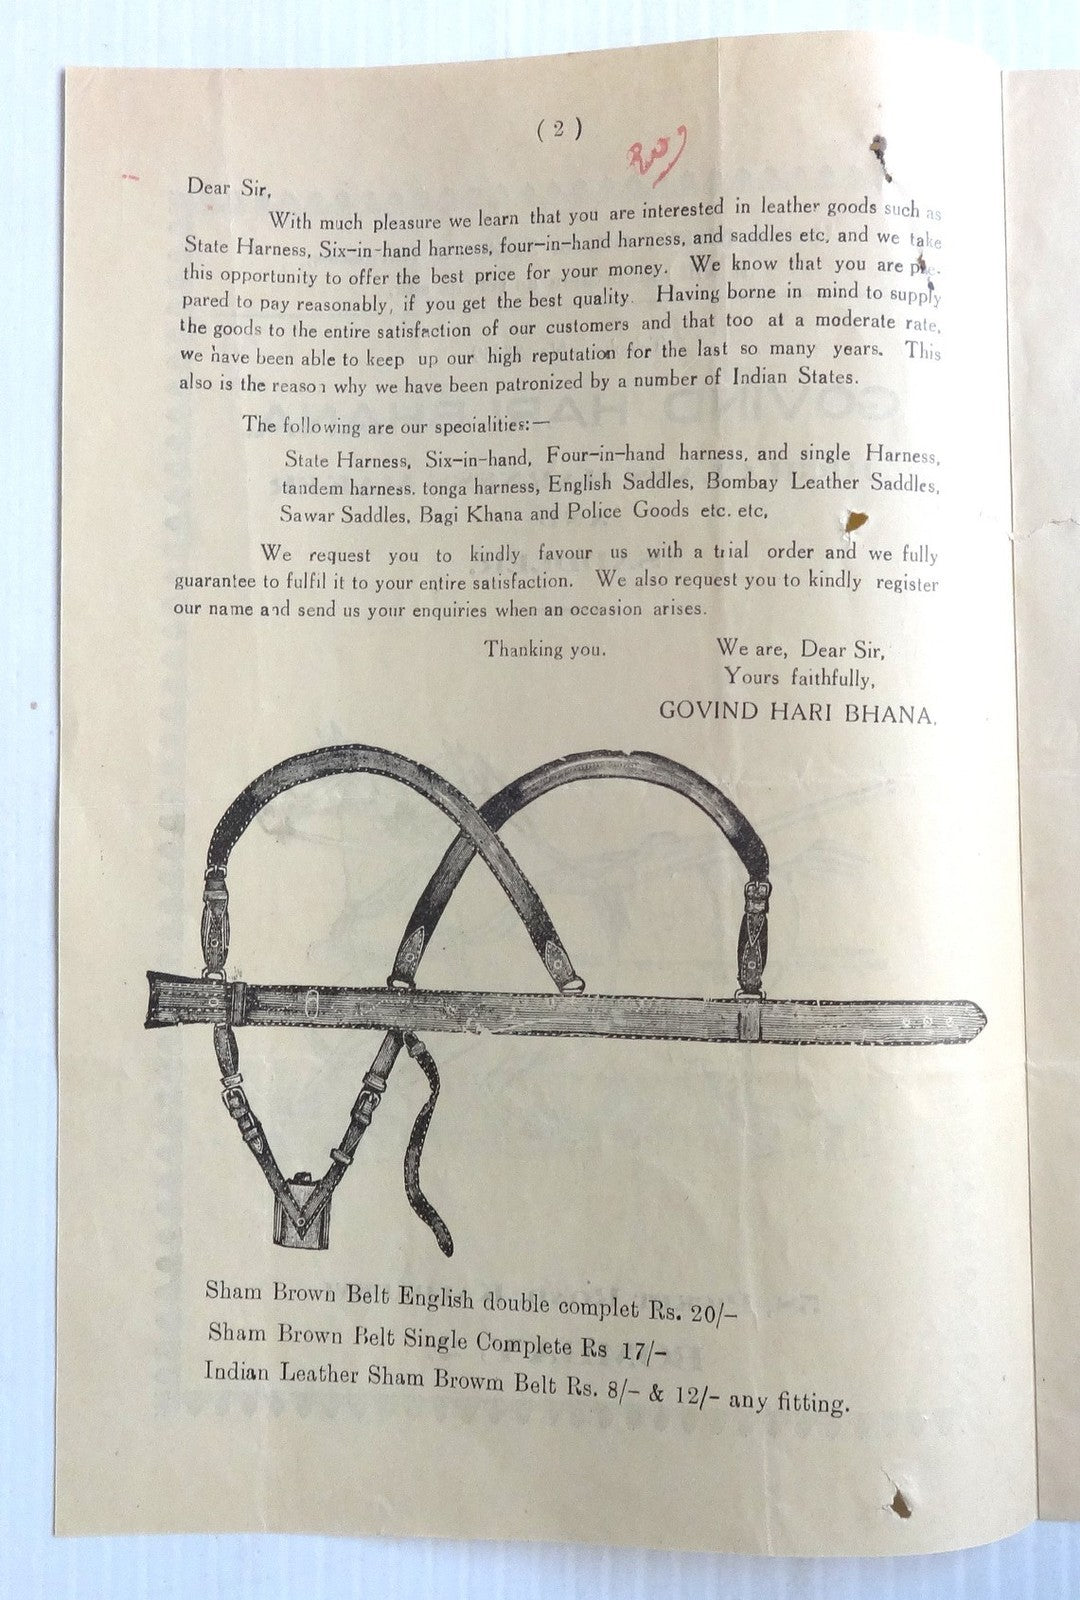 ( 2 )
Dear Sir,
With much pleasure we learn that you are interested in leather goods such as
State Harness, Six-in-hand harness, four-in-hand harness, and saddles etc, and we take
this opportunity to offer the best price for your money. We know that you are pre-
pared to pay reasonably, if you get the best quality. Having borne in mind to supply
the goods to the entire satisfaction of our customers and that too at a moderate rate,
we have been able to keep up our high reputation for the last so many years. This
also is the reason why we have been patronized by a number of Indian States.
The following are our specialities:—
State Harness, Six-in-hand, Four-in-hand harness, and single Harness,
tandem harness. tonga harness, English Saddles, Bombay Leather Saddles,
Sawar Saddles, Bagi Khana and Police Goods etc. etc,
We request you to kindly favour us with a trial order and we fully
guarantee to fulfil it to your entire satisfaction. We also request you to kindly register
our name and send us your enquiries when an occasion arises.
Thanking you. We are, Dear Sir,
Yours faithfully,
GOVIND HARI BHANA,
Sham Brown Belt English double complet Rs. 20/-
Sham Brown Belt Single Complete Rs 17/-
Indian Leather Sham Browm Belt Rs. 8/- & 12/- any fitting.